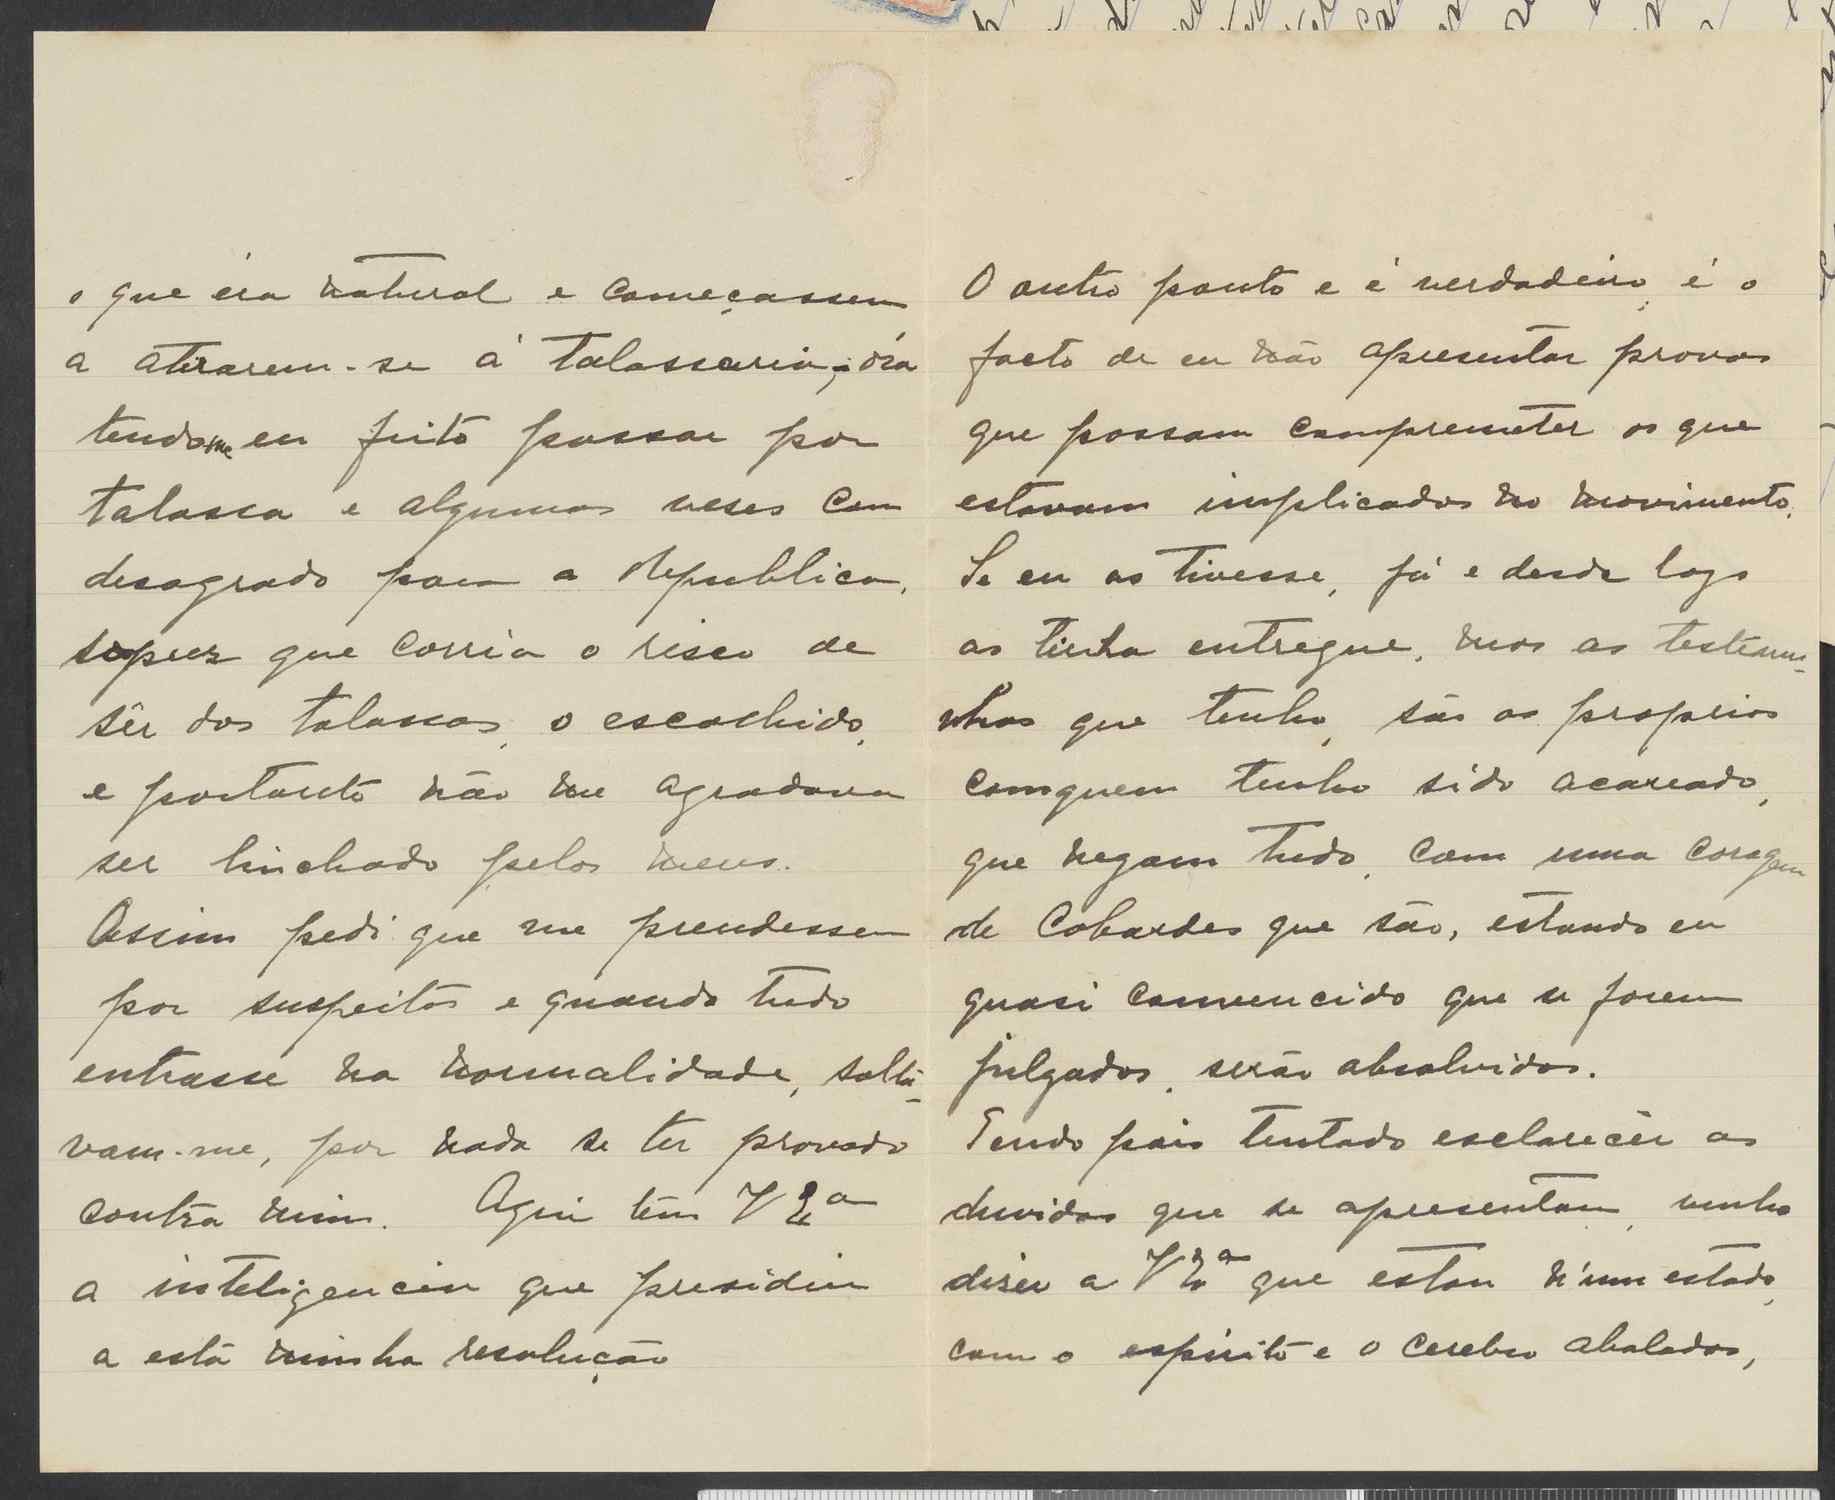 o que éra natural e começassem
a atirarem-se á talassaria, óra
tendo me eu feito passar por
talassa e algumas veses com
desagrado para a Republica,
supuz que corria o risco de
sêr dos talassas, o escolhido,
e portanto não me agradava
ser linchado pelos meus.
Assim pedi que me prendessem
por suspeitos e quando tudo
entrasse na normalidade, soltá-
vam-me, por nada se ter provado
contra mim. Aqui têm V Exa
a inteligencia que presidiu
a está minha resolução
O outro ponto e é verdadeiro, é o
facto de eu não apresentar provas
que possam comprometer os que
estavam implicados no movimento.
Se eu as tivesse, já e desde logo
as tinha entregue, mas as testemu-
nhas que tenho, são os proprios
comquem tenho sido acareado,
que negam tudo, com uma coragem
de cobardes que são, estando eu
quasi comvencido que se forem
julgados, serão absolvidos.
Tendo pois tentado esclarecêr as
duvidas que se apresentam, venho
diser a V Exa que estou n'um estado,
com o espirito e o cerebro abalados,